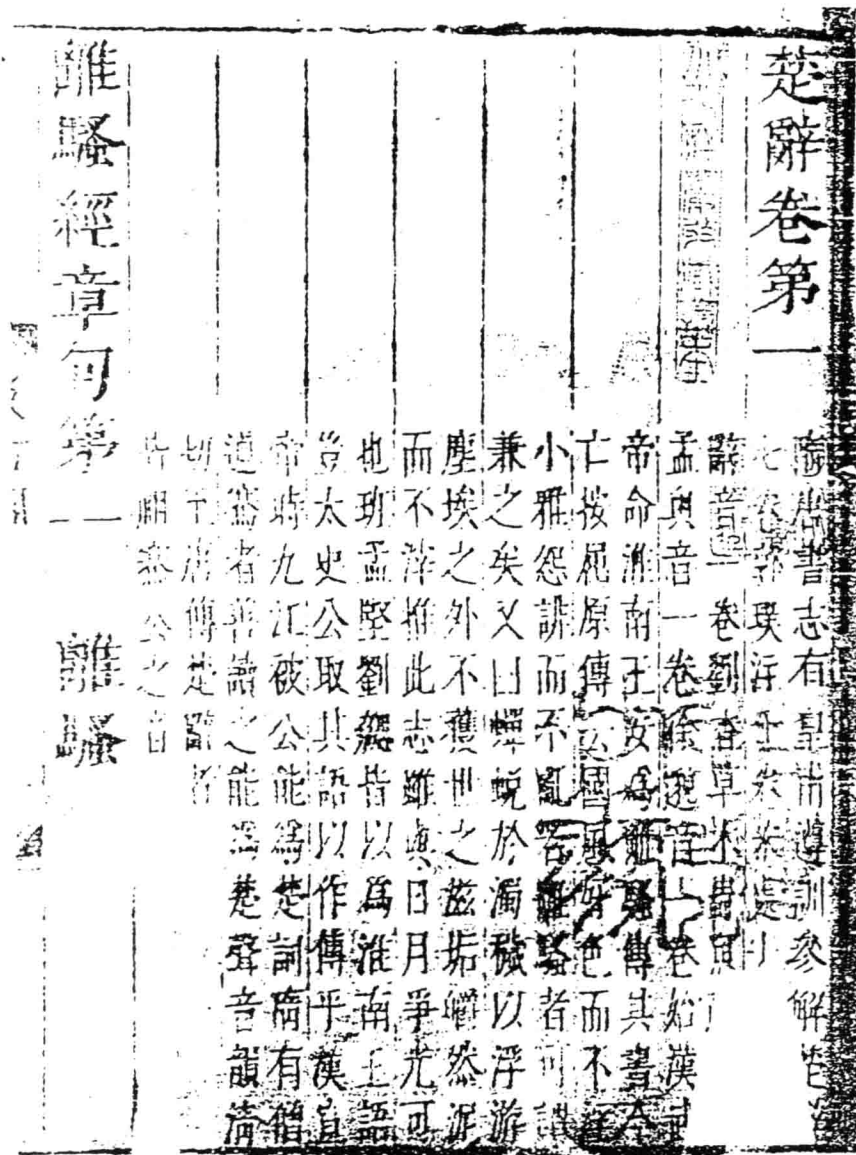 楚辭卷第一
隋唐書志有皇甫遵訓參解楚
七卷郭璞注十卷宋
辭音一卷劉杳草木蟲魚
孟奧音一卷徐邈音一卷始漢武
帝命淮南王安為離騷傳其書今
亡按屈原傳云國風好色而不淫
小雅怨誹而不亂若離騷者可謂
兼之矣又曰蟬蛻於濁穢以浮游
塵埃之外不獲世之滋垢皭然泥
而不滓推此志雖與日月爭光可
也班孟堅劉勰皆以為淮南王語
豈太史公取其語以作傳乎漢宣
帝時九江被公能為楚詞隋有僧
道騫者善讀之能為楚聲音韻清
切至唐傳楚辭者
皆祖騫公之音
離騷經章句第一 離騷